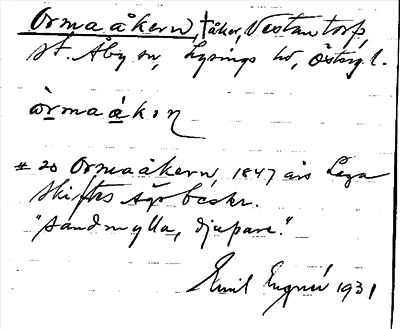 Ormaåkern, †åker, Västantorp,
St. Åby sn, Lysings hd, Östergl.
òrmaákɪn
# 20 Ormaåkern, 1847 års Laga
Skiftes Ägobeskr.
"Sandmylla, djupare."
Emil 1931